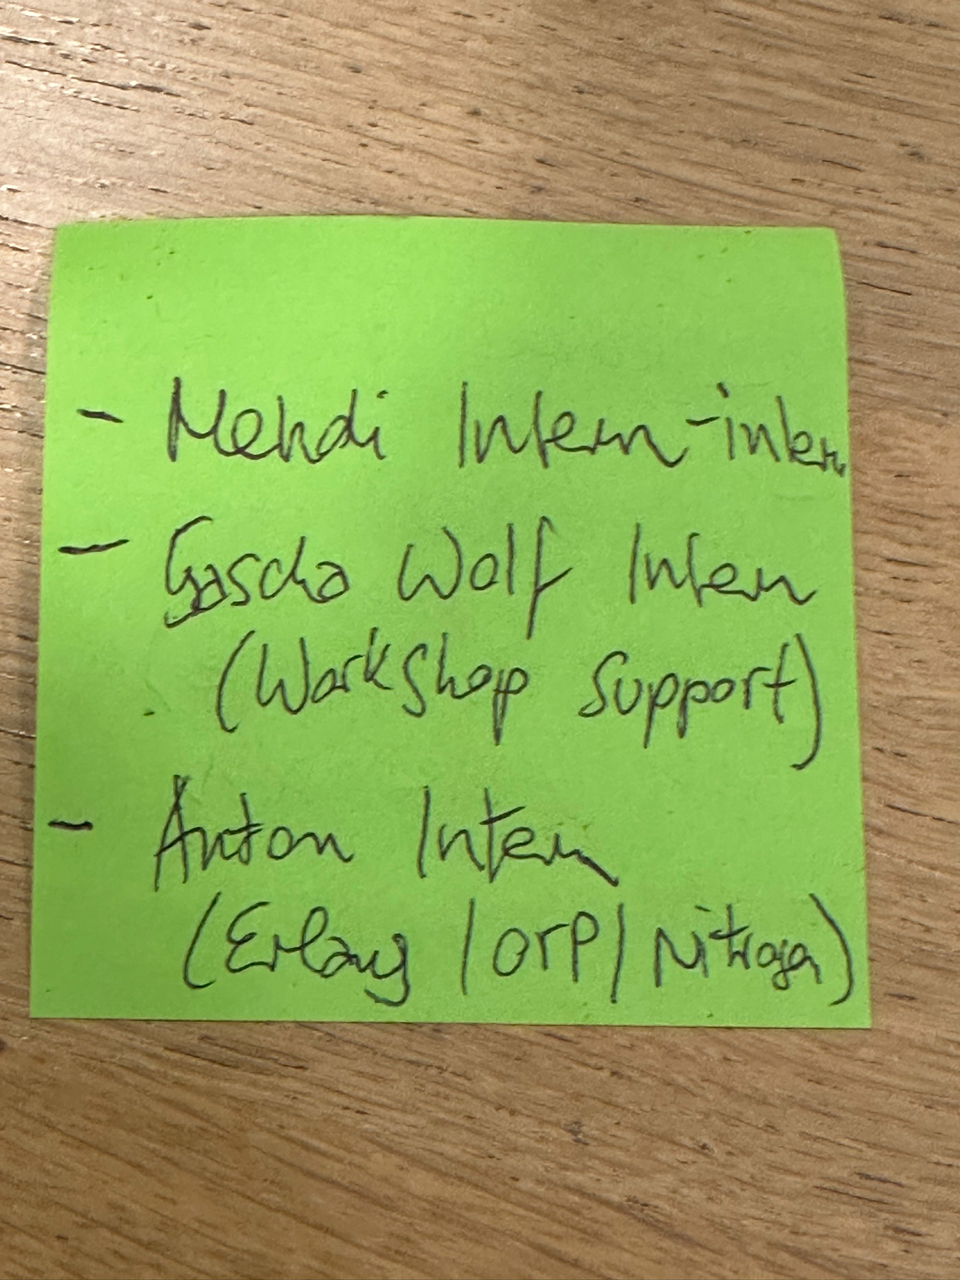 - Mehdi Intern-intern
- Gascha Wolf Intern
(Workshop Support)
- Anton Intern
(Erlang / OTP / Nitrogen)